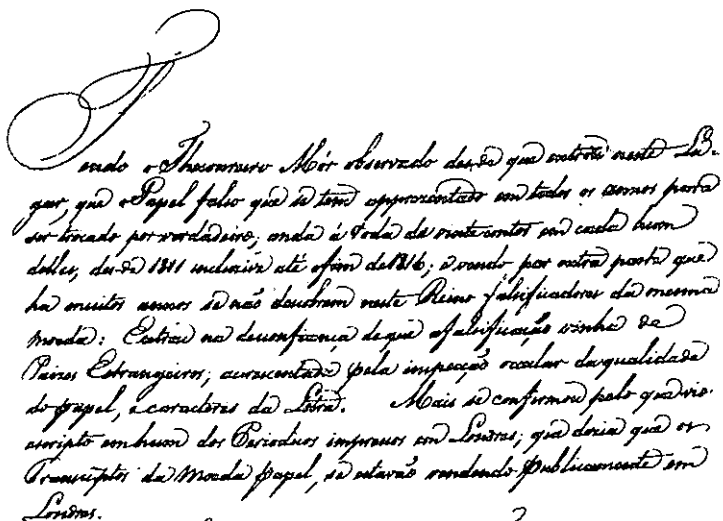 Tendo o Thesoureiro Mór observado desde que entrou neste Lu-
gar, que o Papel falso que se tem apprezentado em todos os annos para
ser trocado por verdadeiro, anda á roda de vinte contos em cada hum
delles, desde 1811 incluzivé até o fim de 1816; e vendo por outra parte que
ha muitos annos se não descobrem neste Reino falsificadores da mesma
moeda: Entrou na desconfiança de que a falsificação vinha de
Paizes Estrangeiros; acrescentada pela inspecção occular da qualidade
do papel, e caracteres da Letra. Mais se confirmou pelo que vio
escripto em hum dos Periodicos impressos em Londres; que dezia que os
Transumptos da Moeda papel, se estavão vendendo publicamente em
Londres.